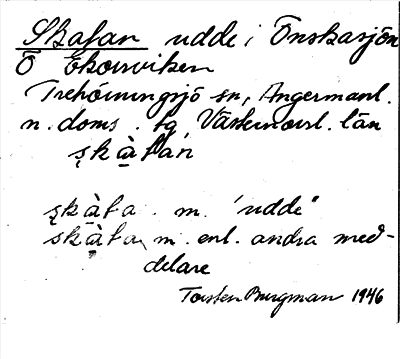 Skatan udde i Önskasjön
Ö Ekorrviken
Trehörningsjö sn, Ångermanl.
n. doms. tg, Västernorrl. län
skàtan
skàta . m. 'udde'
skàta, m. enl. andra med-
delare
Torsten Burgman 1946